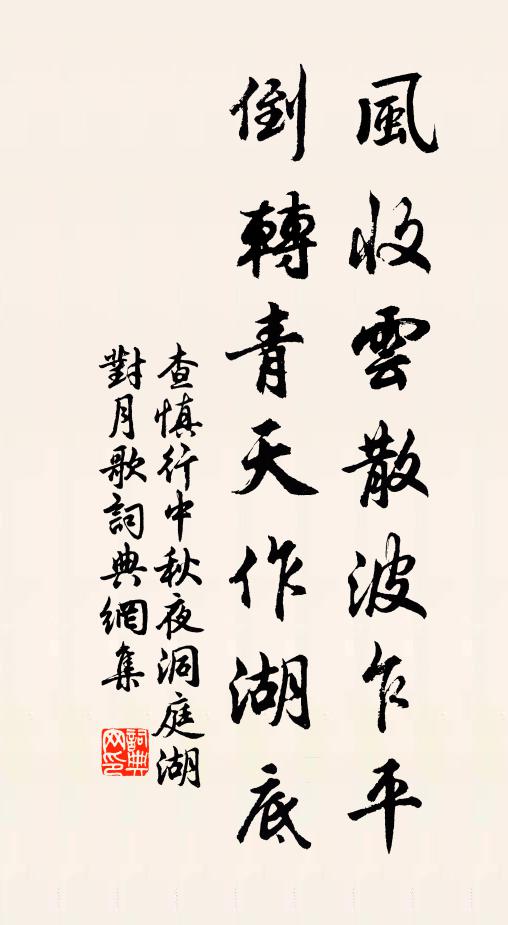 風收雲散波乍平
倒轉青天作湖底
查慎行中秋夜洞庭湖
對月歌詞典網集
詞典
网印